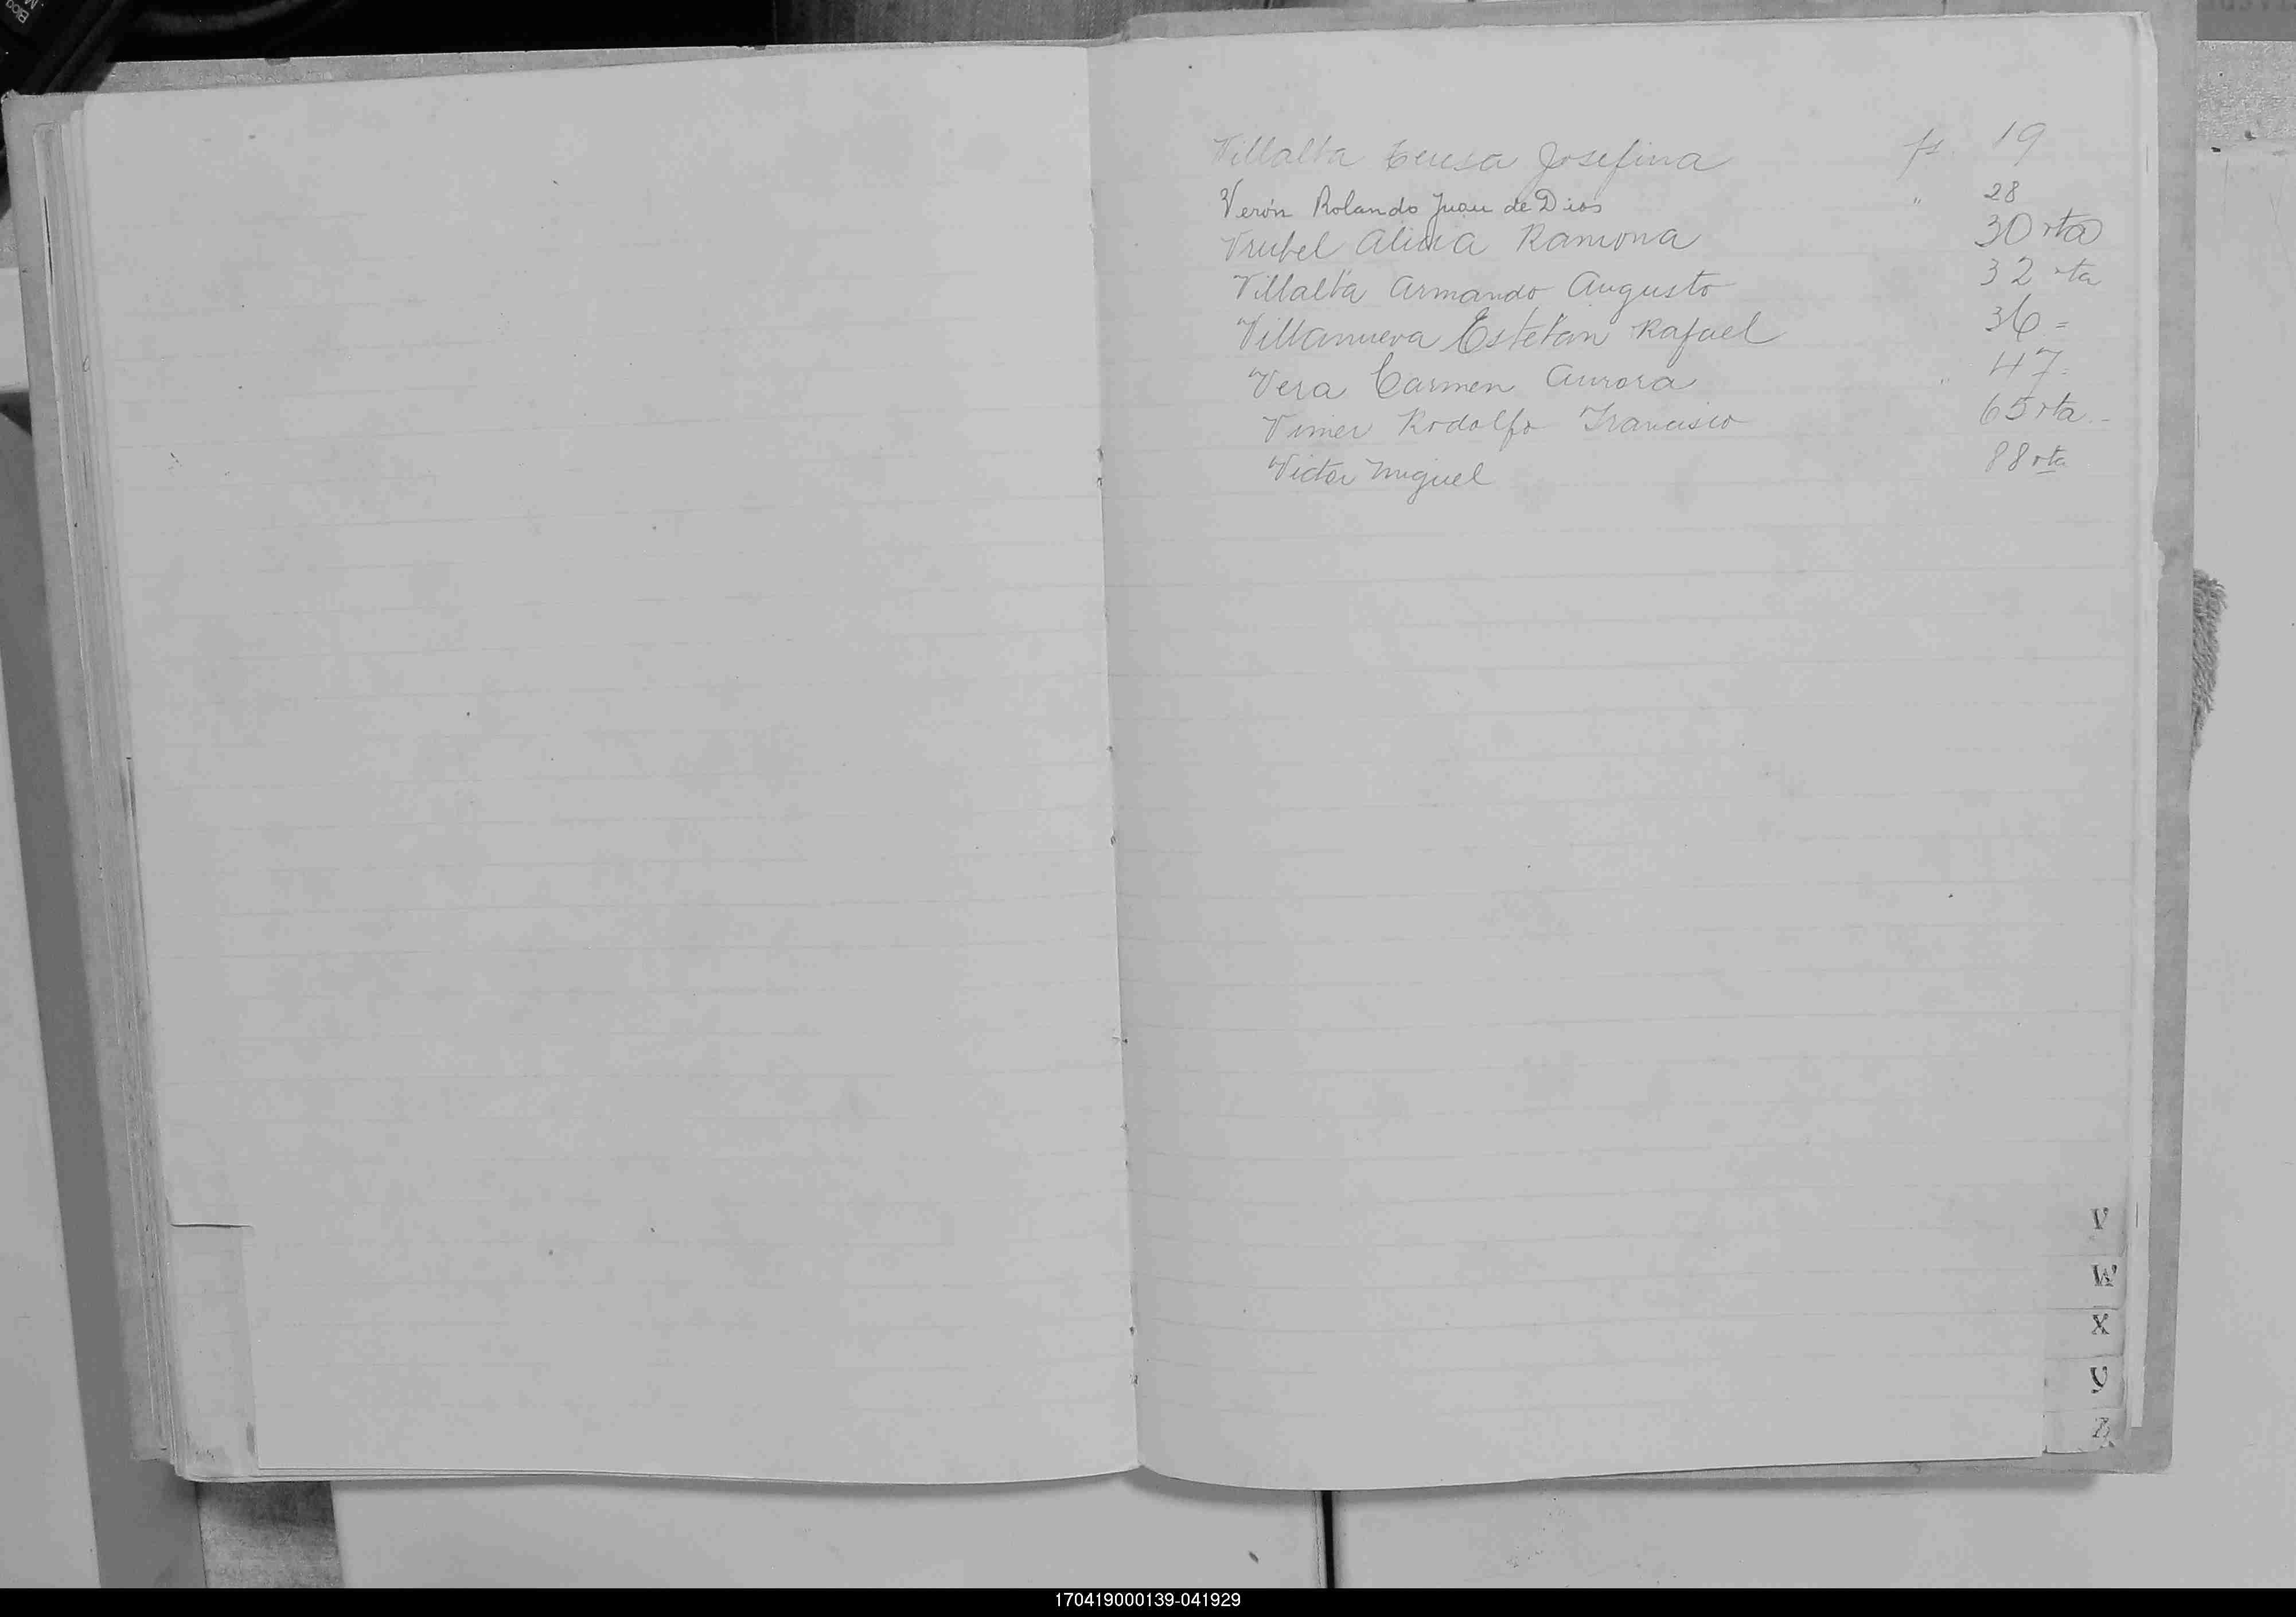 Villalta Teresa Josefina fs. 19
Verón Rolando Juan de Dios " 28
Vrubel Alicia Ramona 30 vta
Villalta Armando Augusto 32 vta
Villanueva Esteban Rafael 36 =
Vera Carmen Aurora " 47 =
Vimer Rodolfo Francisco 65 vta -
Victor Miguel 88 vta
V
W
X
Y
Z
170419000139-041929